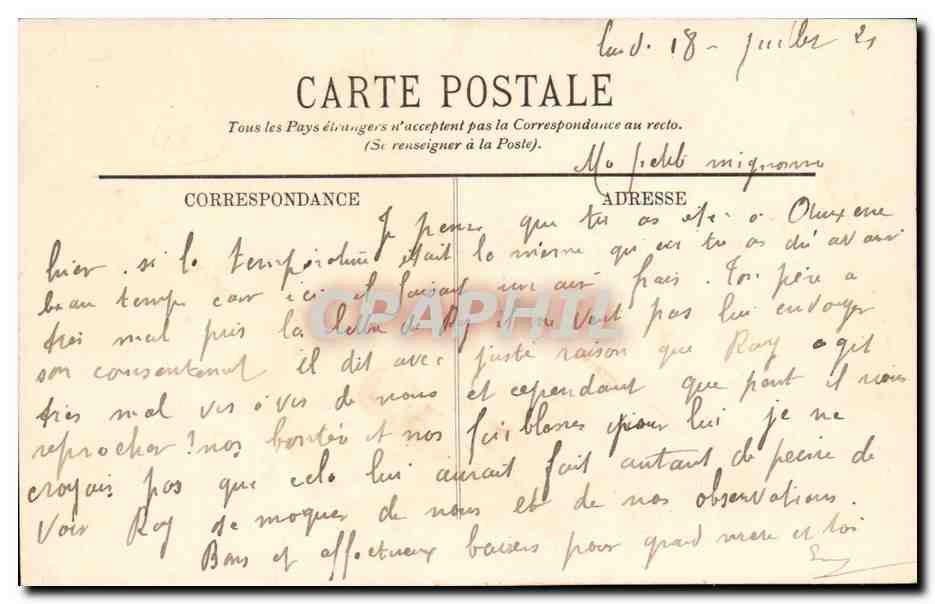 lund. 18 - juillet 21
CARTE POSTALE
Tous les Pays étrangers n'acceptent pas la Correspondance au recto.
(Se renseigner à la Poste).
Ma petite mignonne
CORRESPONDANCE
ADRESSE
Je pense que tu as été à
hier. si la température était la même qu'ici tu as dû avoir
beau temps car ici il faisait un air frais. Ton père a
très mal pris la lettre de Ray il ne veut pas lui envoyer
son consentement il dit avec juste raison que Ray agit
très mal vis à vis de nous et cependant que peut il nous
reprocher! nos bontés et nos faiblesses pour lui je ne
croyais pas que cela lui aurait fait autant de peine de
voir Ray se moquer de nous et de nos observations.
Bons et affectueux baisers pour grand mère et toi
CPAPHIL